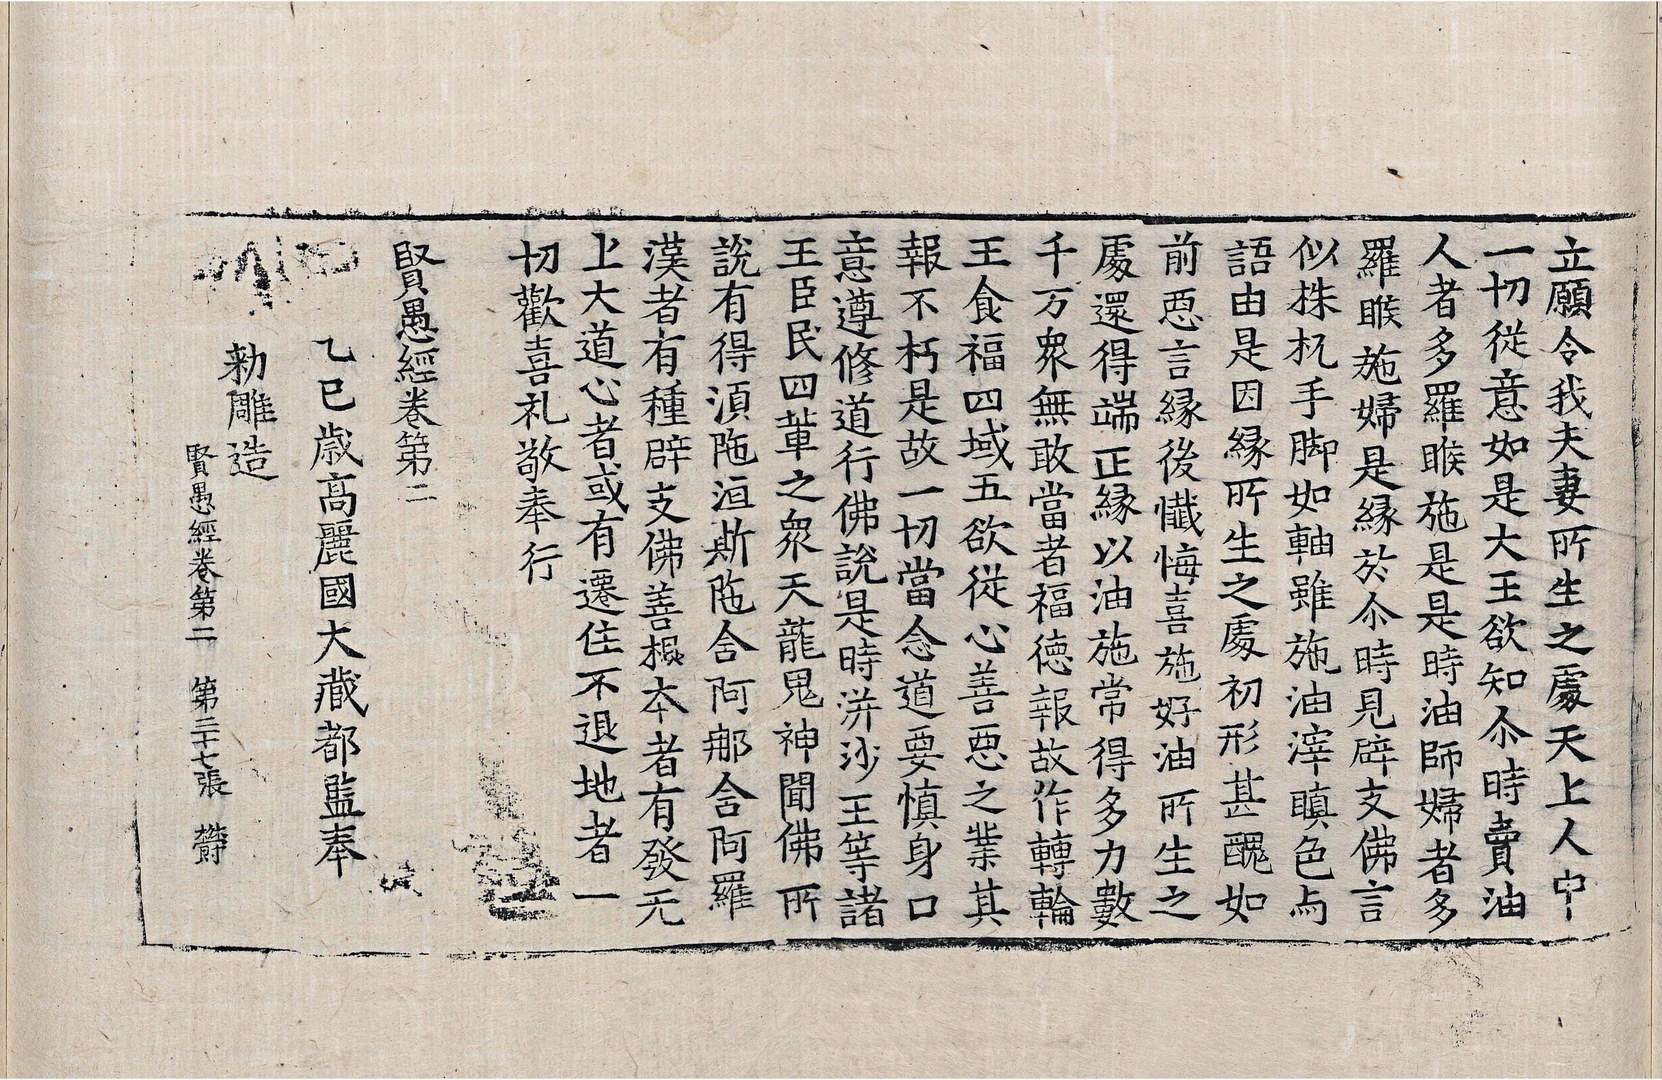 立願令我夫妻所生之處天上人中
一切從意如是大王欲知尒時賣油
人者多羅睺施是是時油師婦者多
羅睺施婦是緣於尒時見辟支佛言
似株杌手脚如軸雖施油滓瞋色与
語由是因緣所生之處初形甚醜如
前惡言緣後懺悔喜施好油所生之
處還得端正緣以油施常得多力數
千万衆無敢當者福德報故作轉輪
王食福四域五欲從心善惡之業其
報不朽是故一切當念道要慎身口
意遵修道行佛說是時洴沙王等諸
王臣民四輩之衆天龍鬼神聞佛所
說有得須陁洹斯陁含阿那含阿羅
漢者有種辟支佛善根本者有發无
上大道心者或有遷住不退地者一
切歡喜礼敬奉行
賢愚經卷第二
乙巳歲高麗國大藏都監奉
勅雕造
賢愚經卷第二 第二十七張 欝